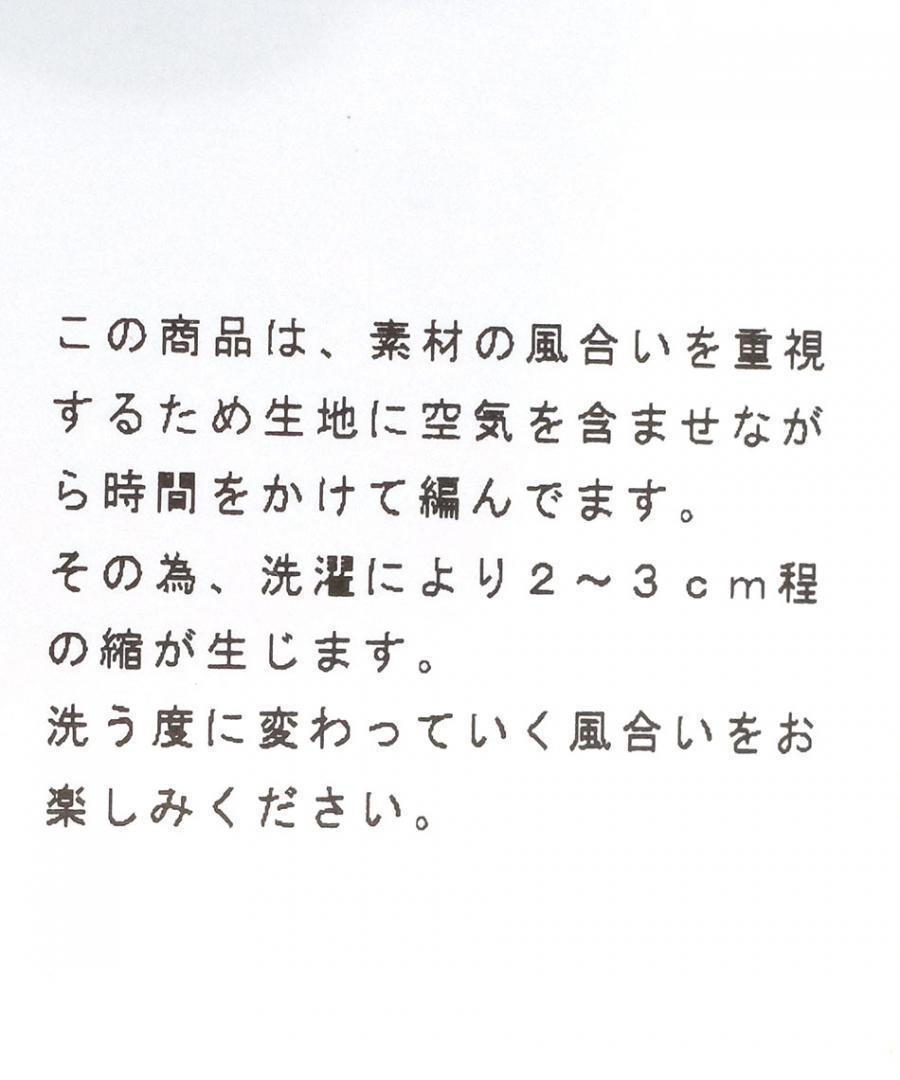 この商品は、素材の風合いを重視
するため生地に空気を含ませなが
ら時間をかけて編んでます。
その為、洗濯により２～３ｃｍ程
の縮が生じます。
洗う度に変わっていく風合いをお
楽しみください。